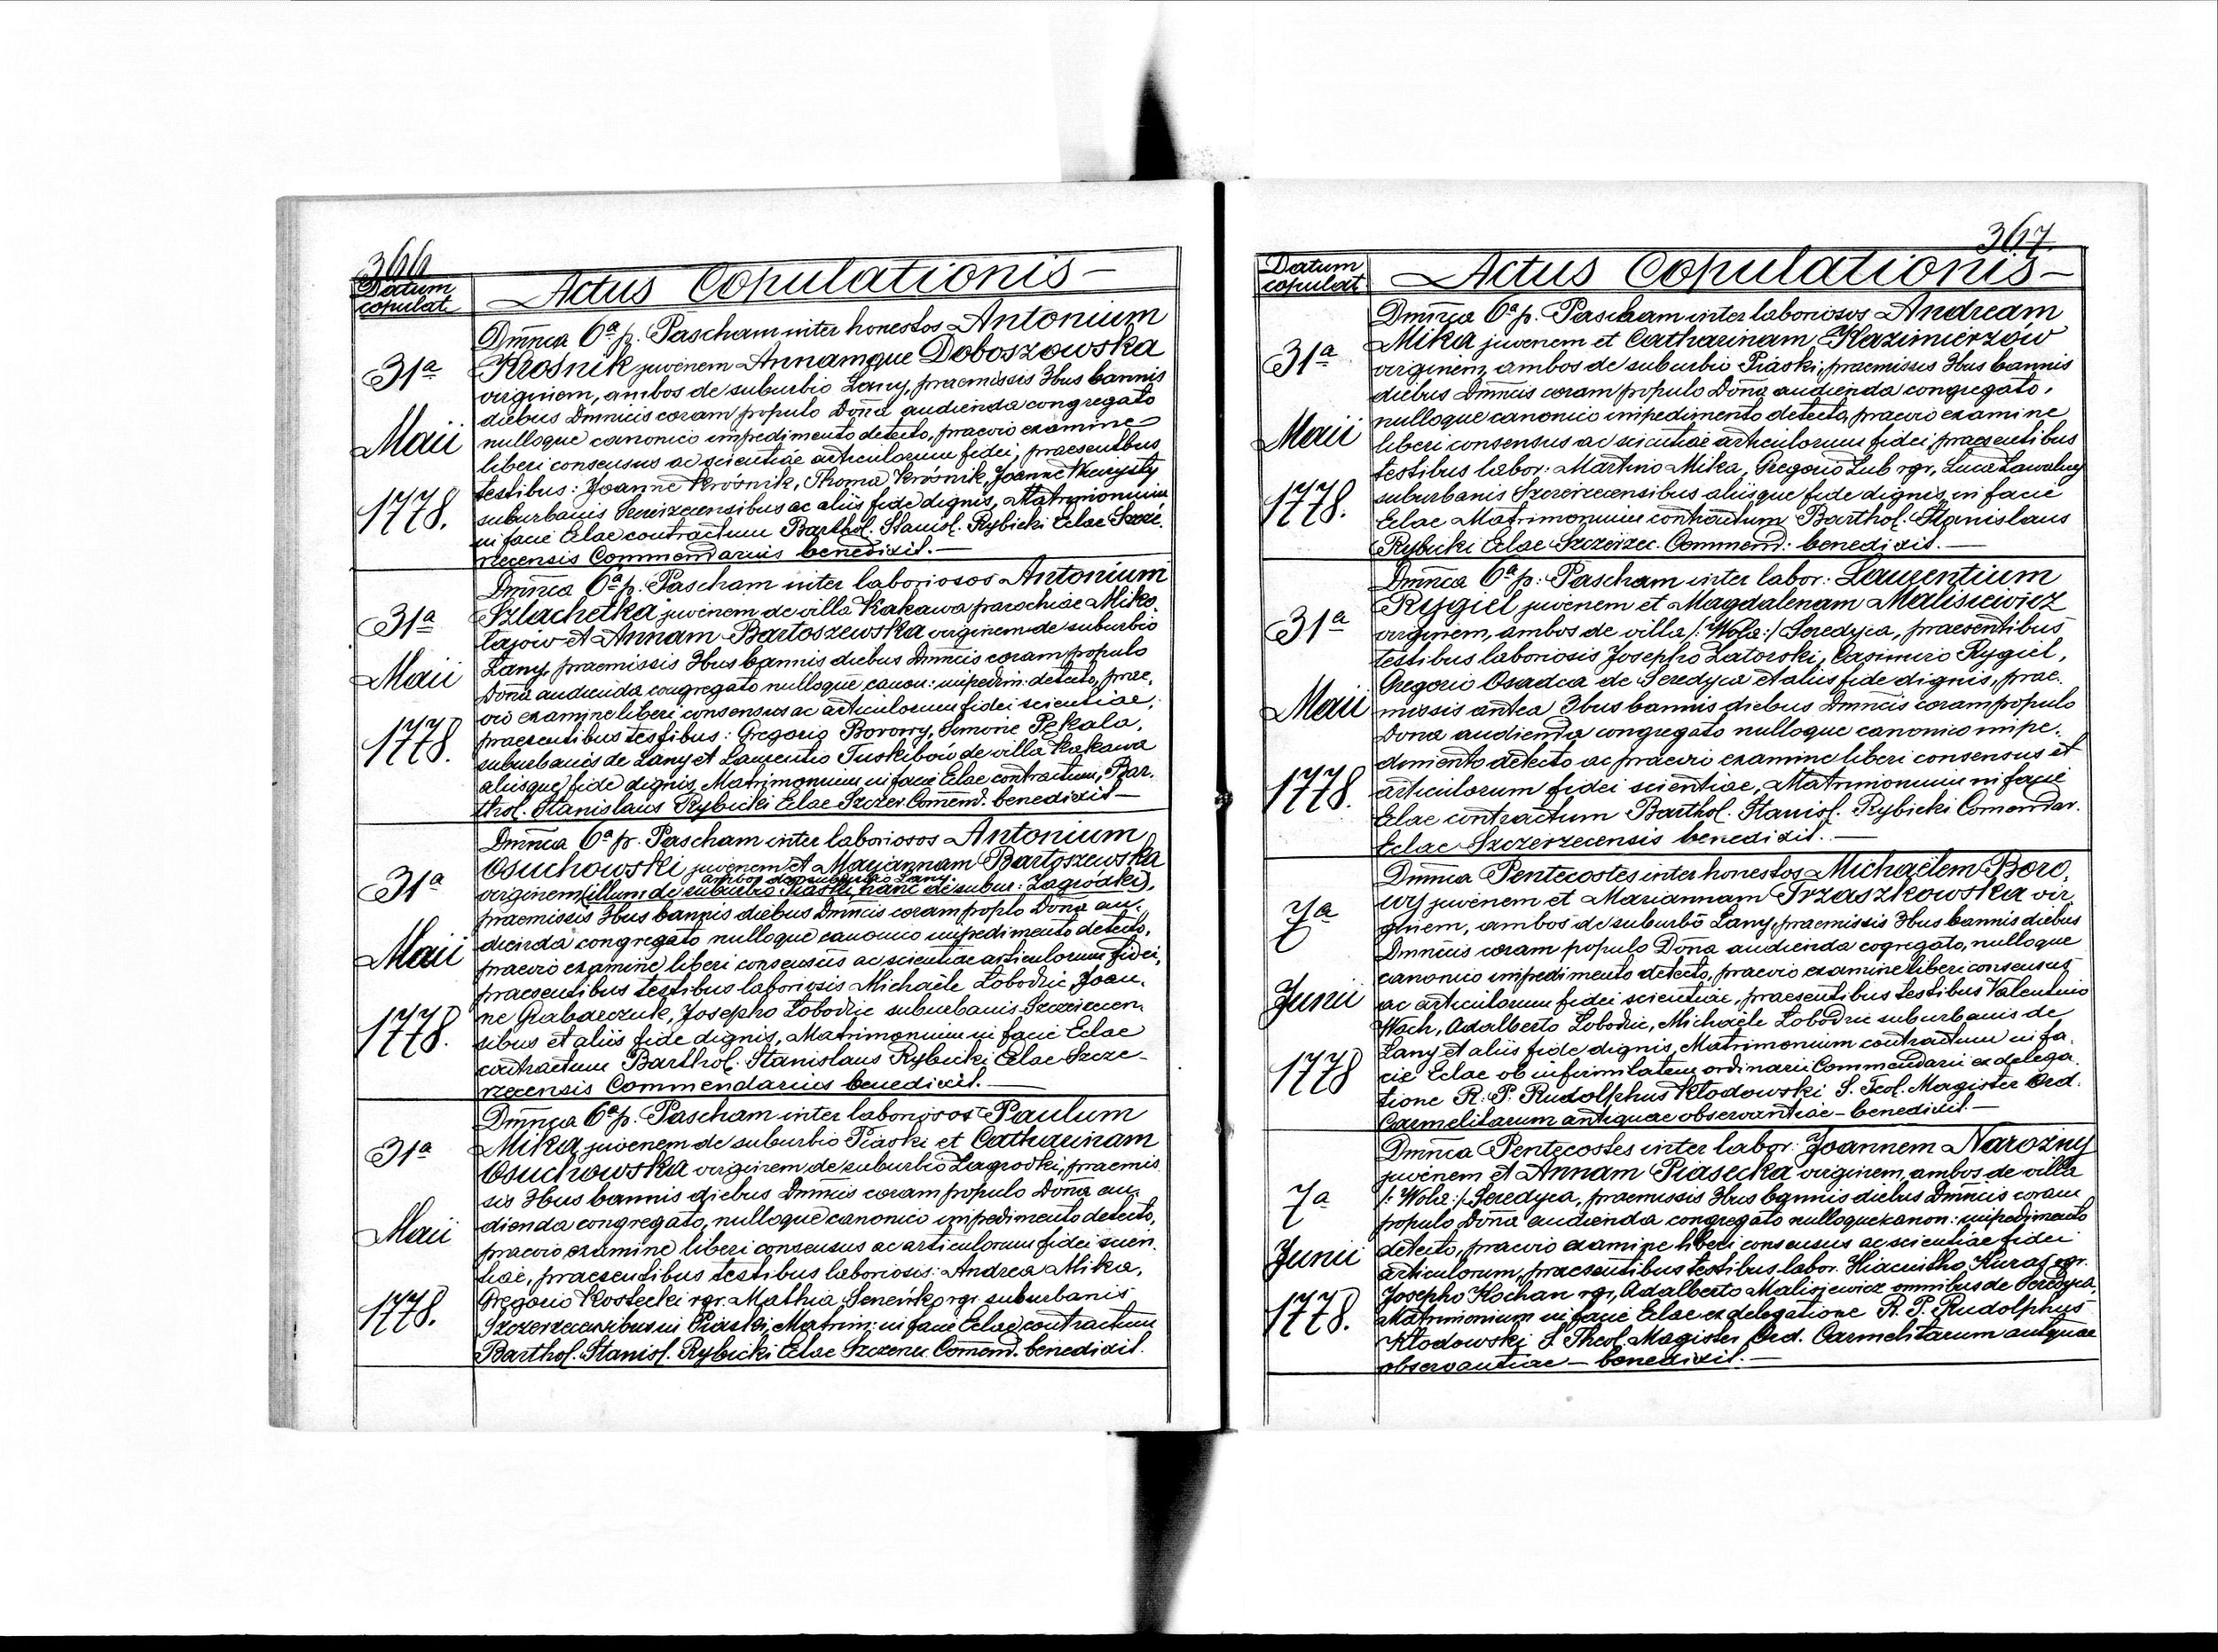 366
Datum
copulat.
Actus Copulationis —
31a
Maii
1778.
Dmnca 6a p. Pascham inter honestos Antonium
Krośnik juvenem Annamque Doboszowska
virginem, ambos de suburbio Łany, praemissis 3bus bannis
diebus Dmnicis coram populo Dona audienda congregato
nulloque canonico impedimento detecto, praevio examine
liberi consensus ac scientiae articulorum fidei, praesentibus
testibus: Joanne Krośnik, Thoma Krośnik, Joanne
suburbanis Szczerzecensibus ac aliis fide dignis, Matrimonium
in facie Eclae contractum Barthol. Stanisl. Rybicki Eclae Szcze-
rzecensis Commendarius benedixit. —
31a
Maii
1778.
Dmnca 6a p. Pascham inter laboriosos Antonium
Szlachetka juvenem de villa Kakawa parochiae Miko-
łajów et Annam Bartoszewska virginem de suburbio
Łany, praemissis 3bus bannis diebus Dmncis coram populo
Dona audienda congregato nulloque canon: impedim: detecto, prae-
vio examine liberi consensus ac articulorum fidei scientiae,
praesentibus testibus: Gregorio Borowy, Simone Pękala,
suburbanis de Łany et Laurentio Tuskibów de villa Kakawa
aliisque fide dignis, Matrimonium in facie Eclae contractum, Bar-
thol. Stanislaus Rybicki Eclae Szczer. Comend. benedixit —
31a
Maii
1778.
Dmnca 6a p. Pascham inter laboriosos Antonium
Osuchowski juvenem et Mariannam Bartoszewska
ambos de suburbio Łany.
virginem (illum de suburbio Piaski, hanc de subur: Zagródki),
praemissis 3bus bannis diebus Dmncis coram poplo Dona au-
dienda congregato nulloque canonico impedimento detecto,
praevio examine liberi consensus ac scientiae articulorum fidei,
praesentibus testibus laboriosis Michaële Łobodzic, Joan-
ne Grabarczuk, Josepho Łobodzic suburbanis Szczerzecen-
sibus et aliis fide dignis, Matrimonium in facie Eclae
contractum Barthol. Stanislaus Rybicki Eclae Szcze-
rzecensis Commendarius benedixit. —
31a
Maii
1778.
Dmnca 6a p. Pascham inter laboriosos Paulum
Mika juvenem de suburbio Piaski et Catharinam
Osuchowska virginem de suburbio Zagrodki, praemis-
sis 3bus bannis diebus Dmncis coram populo Dona au-
dienda congregato, nulloque canonico impedimento detecto,
praevio examine liberi consensus ac articulorum fidei scien-
tiae, praesentibus testibus laboriosis: Andrea Mika,
Gregorio Kostecki rgr. Mathia Seneńko rgr. suburbanis
Szczerzecensibus in Piaski, Matrim: in facie Eclae contractum
Barthol. Stanisl. Rybicki Eclae Szczerz. Comend. benedixit.
367.
Datum
copulat
Actus Copulationis —
31a
Maii
1778.
Dmnca 6a p. Pascham inter laboriosos Andream
Mika juvenem et Catharinam Kazimierzów
virginem, ambos de suburbio Piaski, praemissis 3bus bannis
diebus Dmncis coram populo Dona audienda congregato,
nulloque canonico impedimento detecto, praevio examine
liberi consensus ac scientiae articulorum fidei praesentibus
testibus labor: Martino Mika, Gregorio Lub rgr, Luca
suburbanis Szczerzecensibus aliisque fide dignis, in facie
Eclae Matrimonium contractum Barthol. Stanislaus
Rybicki Eclae Szczerzec. Commend: benedixit. —
31a
Maii
1778.
Dmnca 6a p: Pascham inter labor: Laurentium
Rygiel juvenem et Magdalenam Malisiewicz
virginem, ambos de villa /: Wola :/ Seredyca, praesentibus
testibus laboriosis Josepho Zatorski, Casimiro Rygiel,
Gregorio Osadca de Seredyca et aliis fide dignis, prae-
missis antea 3bus bannis diebus Dmncis coram populo
Dona audienda congregato nulloque canonico impe-
dimento detecto ac praevio examine liberi consensus et
articulorum fidei scientiae, Matrimonium in facie
Eclae contractum Barthol. Stanisl. Rybicki Comendar.
Eclae Szczerzecensis benedixit. —
7a
Junii
1778
Dmnca Pentecostes inter honestos Michaëlem Boro-
wy juvenem et Mariannam Trzaszkowska vir-
ginem, ambos de suburbo Łany, praemissis 3bus bannis diebus
Dmncis coram populo Dona audienda cogregato, nulloque
canonico impedimento detecto, praevio examine liberi consensus
ac articulorum fidei scientiae, praesentibus testibus Valentino
Wach, Adalberto Łobodzic, Michaële Łobodzic suburbanis de
Łany et aliis fide dignis, Matrimonium contractum in fa-
cie Eclae ob infirmitatem ordinarii Commendarii ex delega-
tione R. P. Rudolphus Kłodowski S. Teol. Magister Ord.
Carmelitarum antiquae observantiae — benedixit. —
7a
Junii
1778.
Dmnca Pentecostes inter labor. Joannem Narozny
juvenem et Annam Piasecka virginem, ambos de villa
/: Wola :/ Seredyca, praemissis 3bus bannis diebus Dmncis coram
populo Dona audienda congregato nulloque canon: impedimento
detecto, praevio examine liberi consensus ac scientiae fidei
articulorum, praesentibus testibus labor. Hiacintho Kuras rgr.
Josepho Kochan rgr, Adalberto Malisiewicz omnibus de Seredyca,
Matrimonium in facie Eclae ex delegatione R. P. Rudolphus
Kłodowski S. Theol. Magister Ord. Carmelitarum antiquae
observantiae — benedixit. —